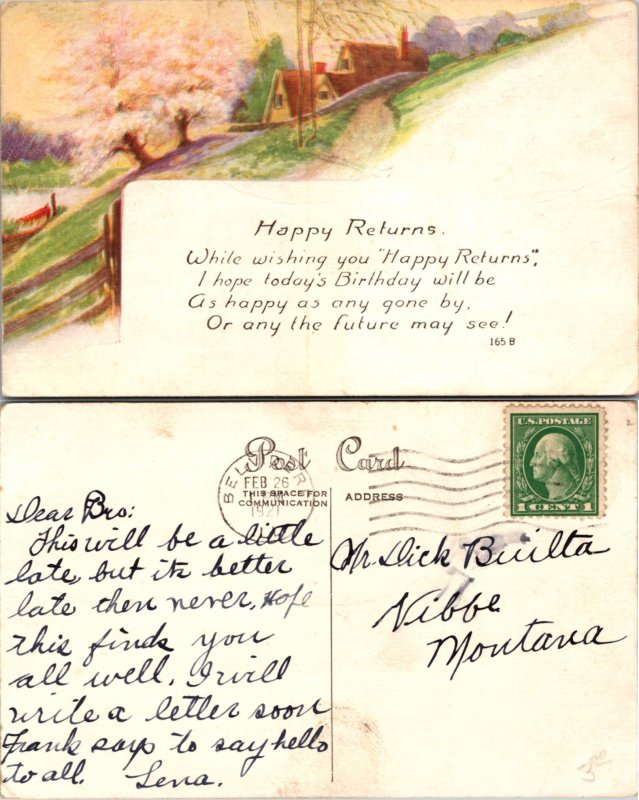 Happy Returns.
While wishing you "Happy Returns",
I hope today's Birthday will be
As happy as any gone by,
Or any the future may see!
165 B
Post Card
THIS SPACE FOR
COMMUNICATION
ADDRESS
FEB 26
1921
U.S. POSTAGE
1 CENT 1
Dear Bro:
This will be a little
late but its better
late then never. Hope
this finds you
all well. I will
write a letter soon
Frank says to say hello
to all. Lena.
Mr. Dick Builta
Nibbe
Montana